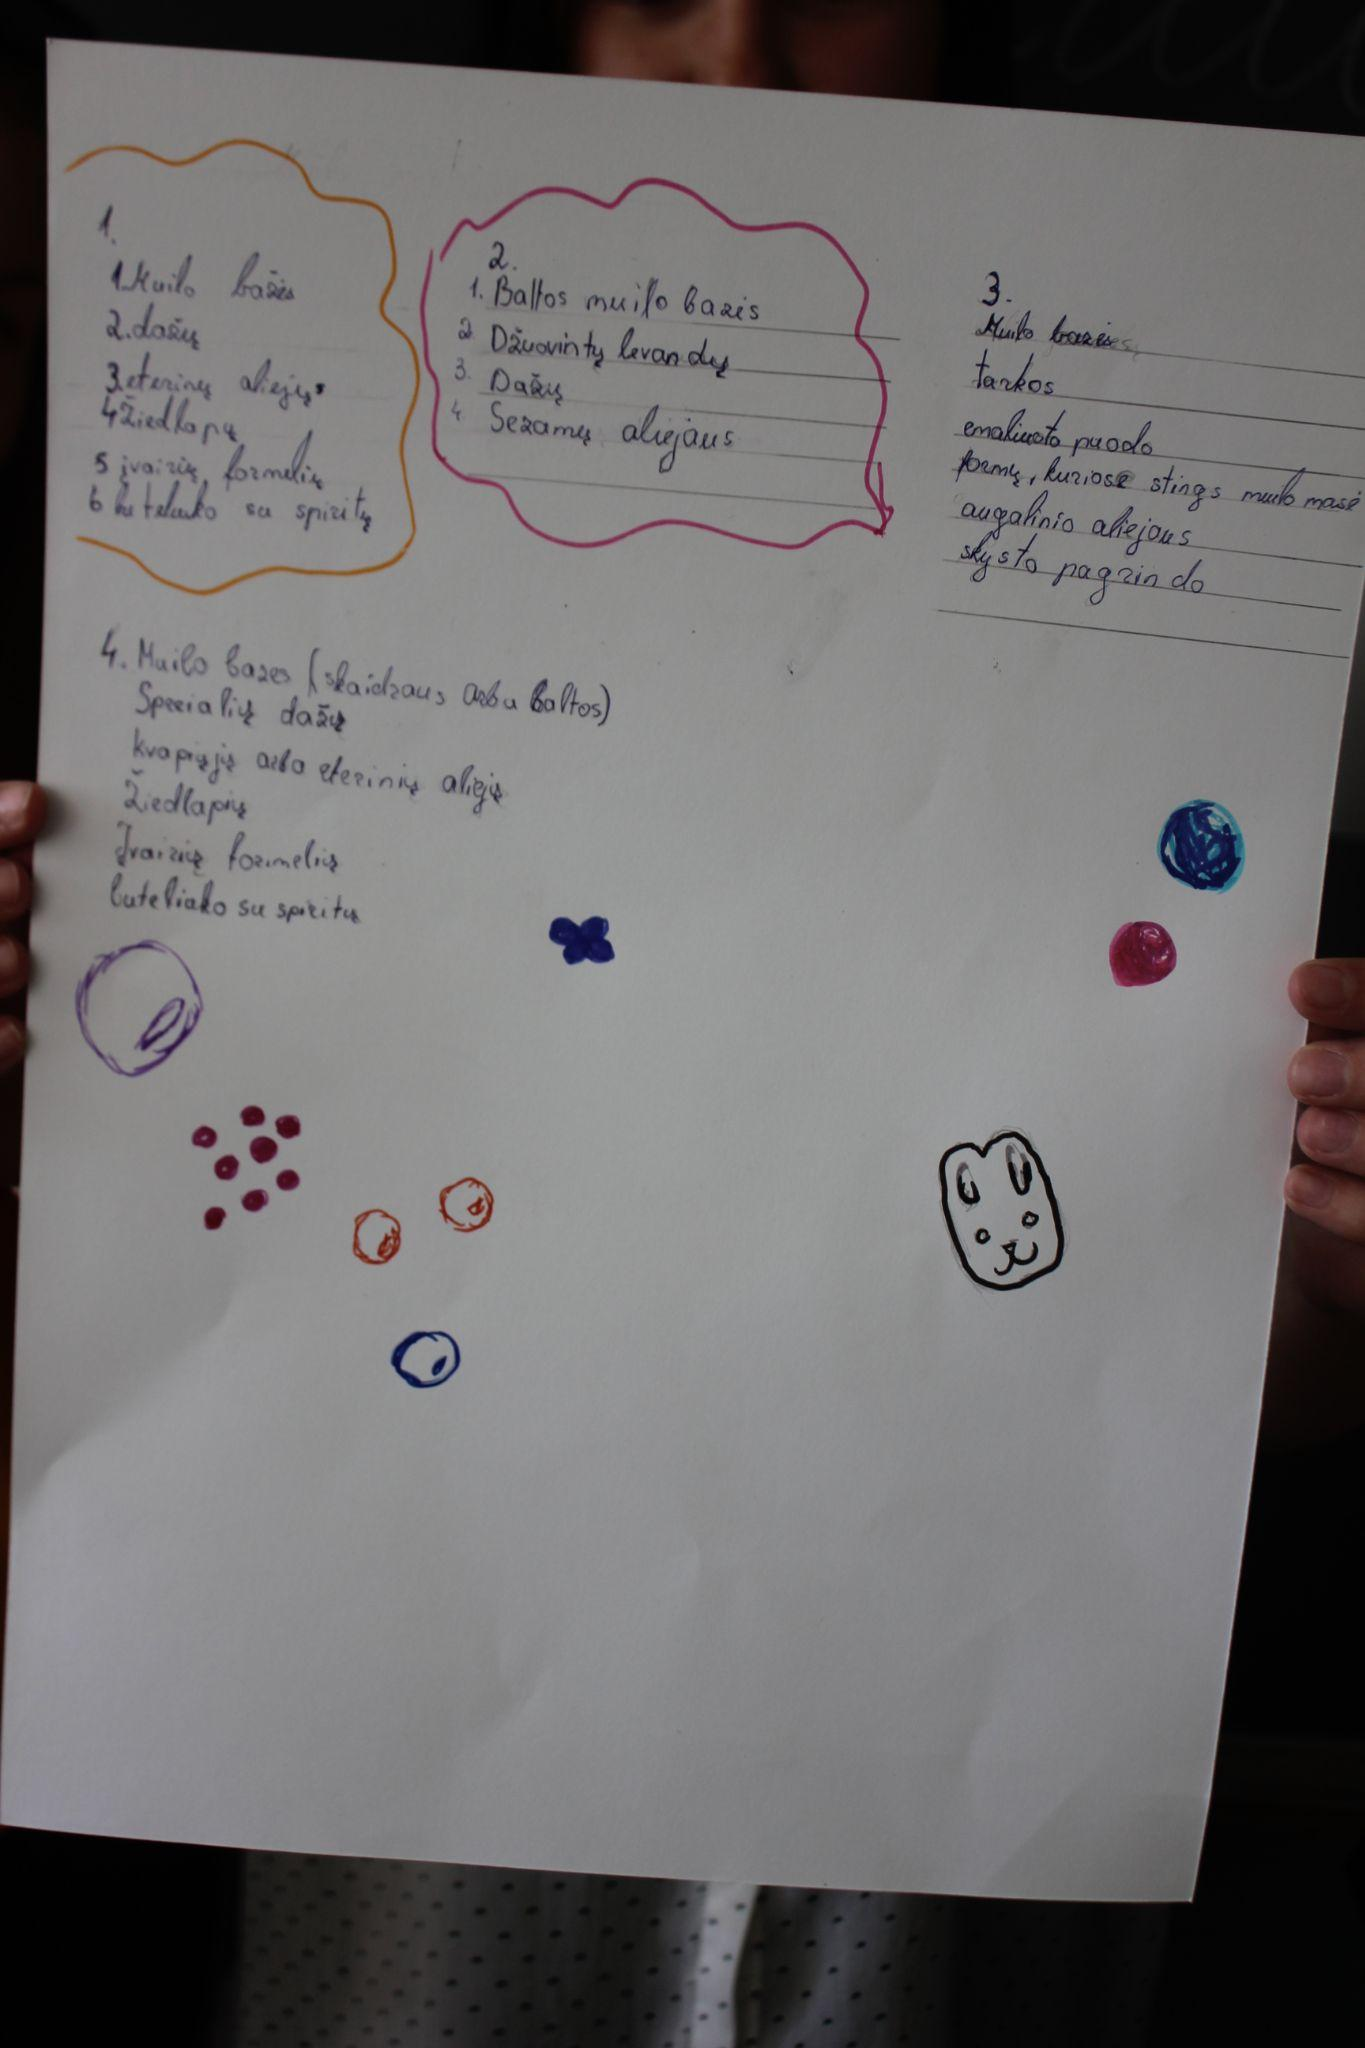 1.
1. Muilo bazės
2. dažų
3. eterinų aliejų
4 Žiedlapų
5 įvairių formelių
6 buteliuko su spiritų
2.
1. Baltos muilo bazės
2. Džuovintų levandų
3. Dažų
4. Sezamų aliejaus
3.
Muilo bazės
tarkos
emaliuoto puodo
formų, kuriose stings muilo masė
augalinio aliejaus
skysto pagrindo
4. Muilo bazes (skaidraus arba baltos)
Specialių dažų
kvapiųjų arba eterinių aliejų
Žiedlapių
Įvairių formelių
buteliako su spiritų